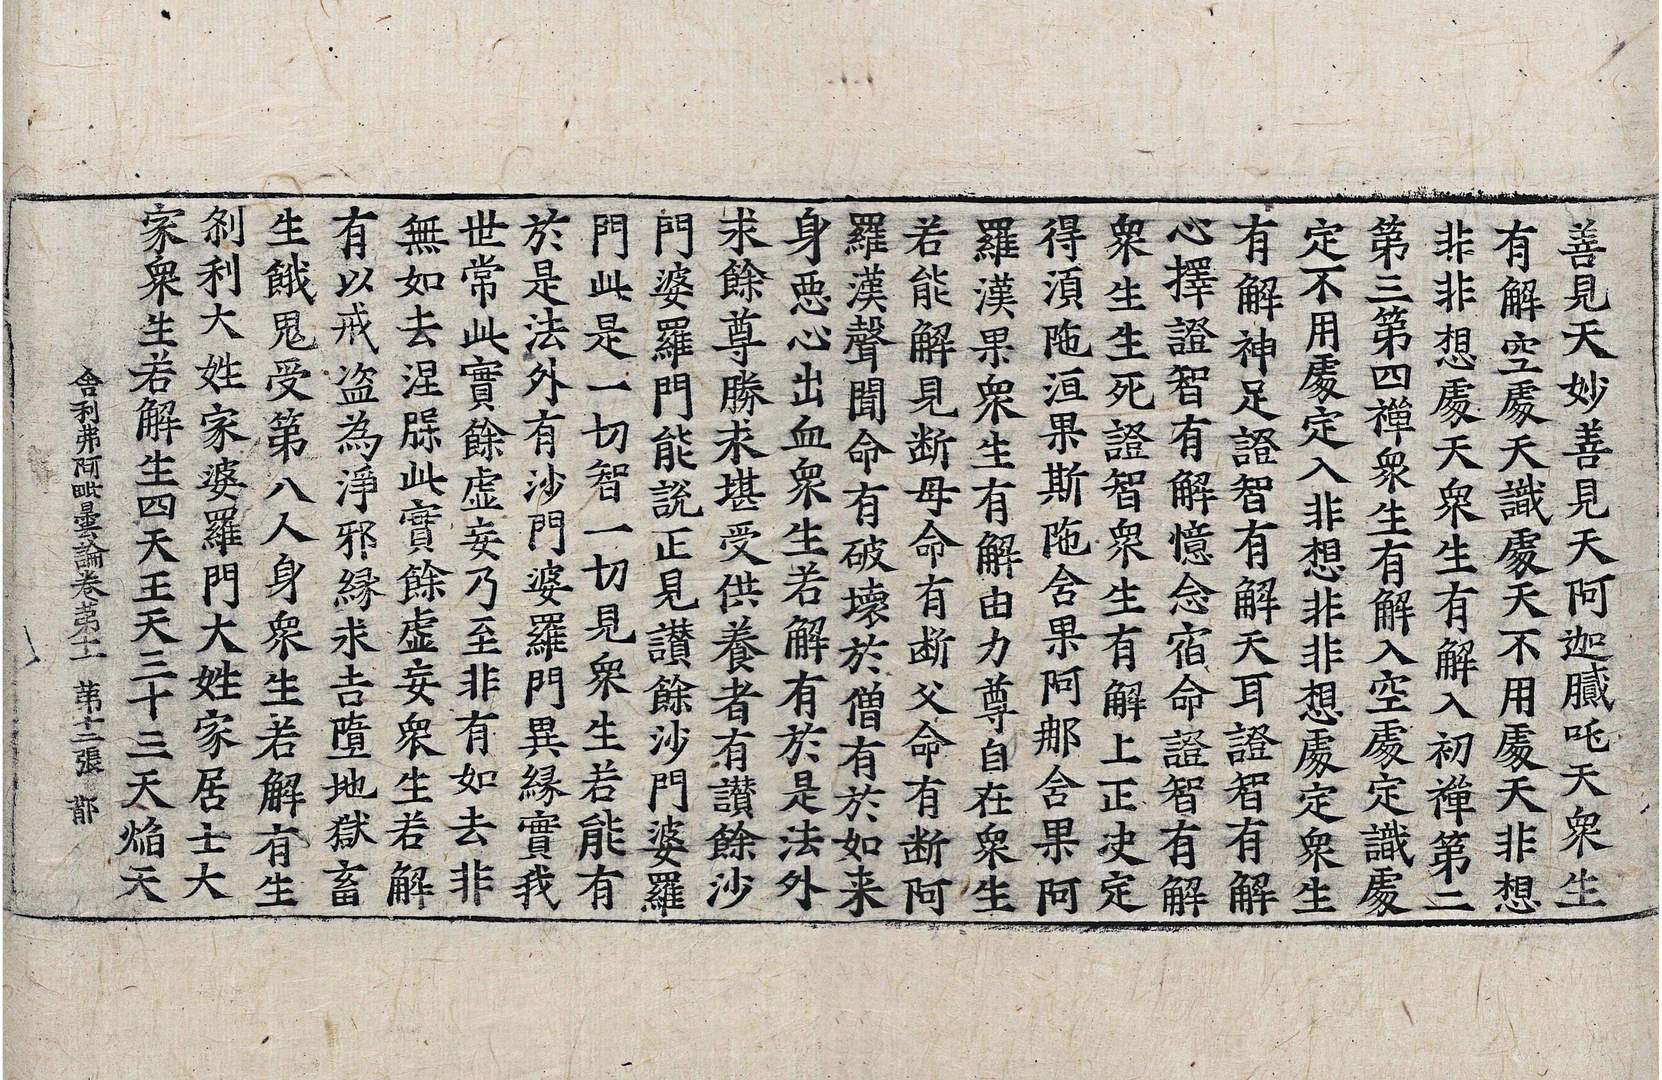 善見天妙善見天阿迦膩吒天衆生
有解空處天識處天不用處天非想
非非想處天衆生有解入初禪第二
第三第四禪衆生有解入空處定識處
定不用處定入非想非非想處定衆生
有解神足證智有解天耳證智有解
心擇證智有解憶念宿命證智有解
衆生生死證智衆生有解上正决定
得湏陁洹果斯陁舍果阿那舍果阿
羅漢果衆生有解由力尊自在衆生
若能解見断母命有断父命有断阿
羅漢聲聞命有破壞於僧有於如来
身惡心出血衆生若解有於是法外
求餘尊勝求堪受供養者有讃餘沙
門婆羅門能說正見讃餘沙門婆羅
門此是一切智一切見衆生若能有
於是法外有沙門婆羅門異緣實我
世常此實餘虛妄乃至非有如去非
無如去涅槃此實餘虛妄衆生若解
有以戒盜為淨邪緣求吉墮地獄畜
生餓鬼受第八人身衆生若解有生
刹利大姓家婆羅門大姓家居士大
家衆生若解生四天王天三十三天焰天
舍利弗阿毗曇論卷第十一 第十二張